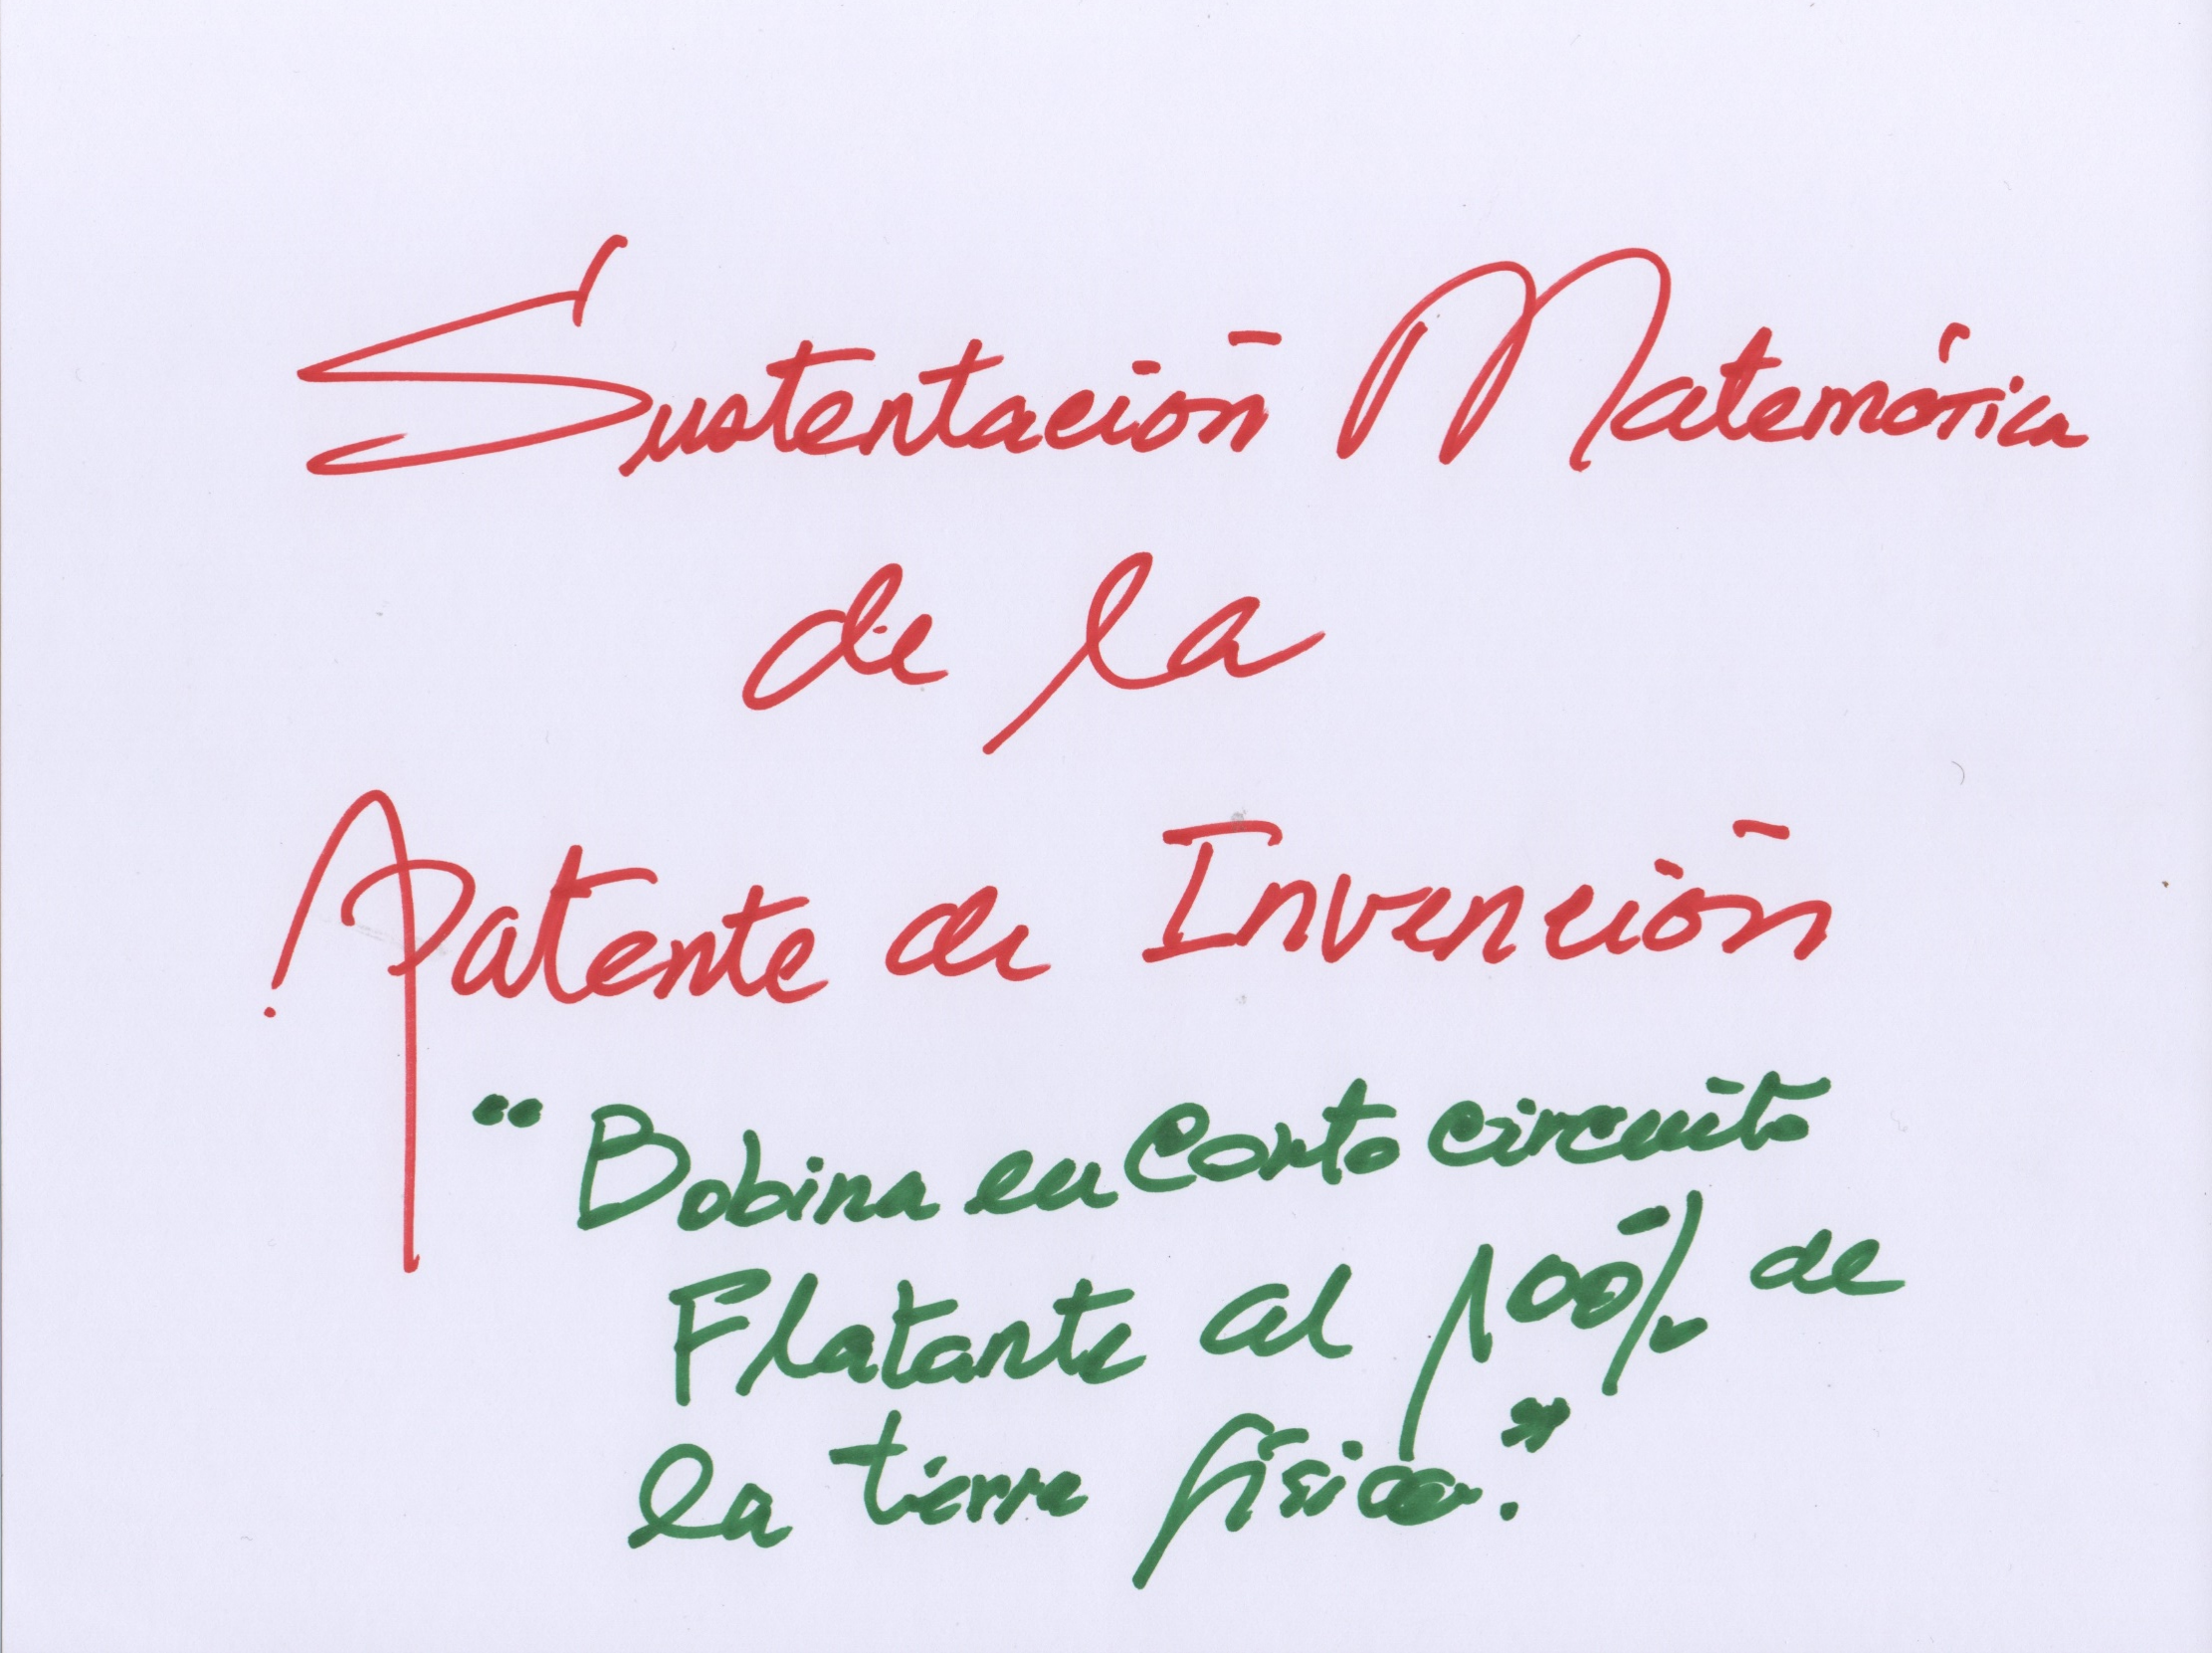 Sustentación Matemática
de la
Patente de Invención
“Bobina en Corto circuito
Flatante al 100% de
la tierra física.”